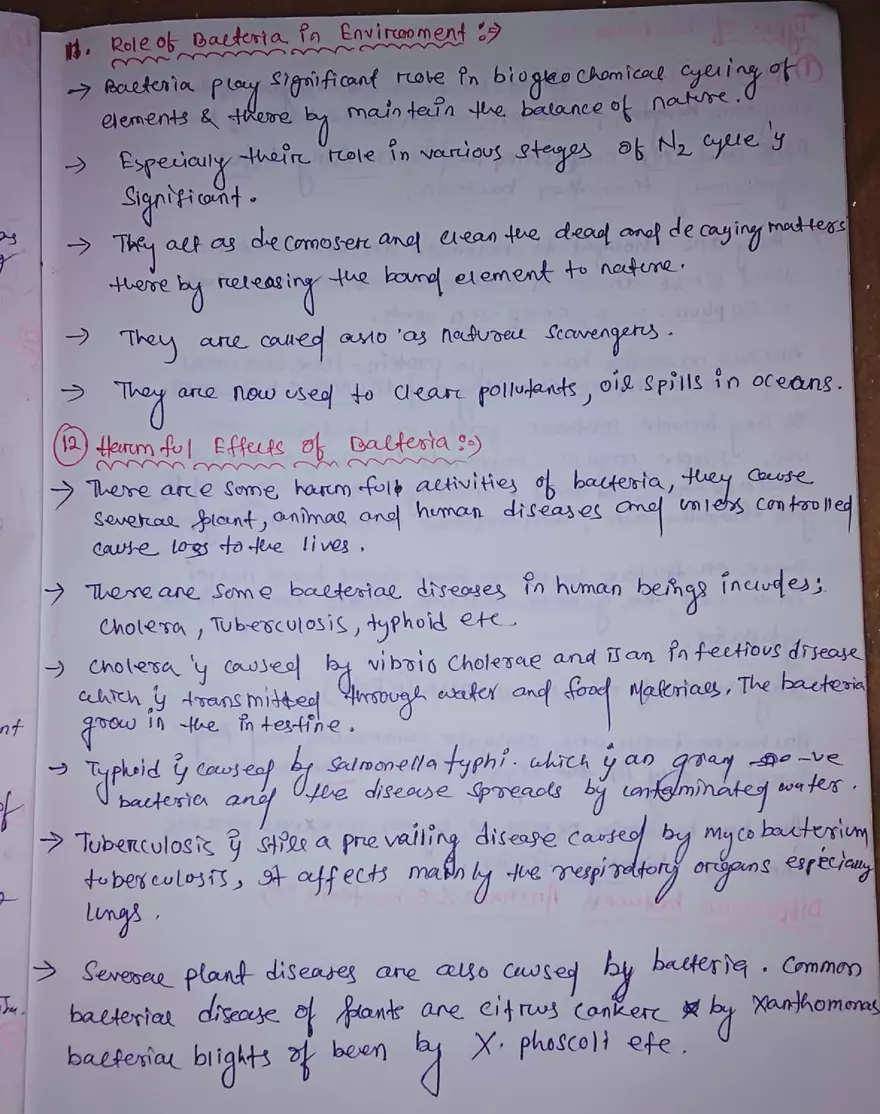 11. Role of Bacteria in Environment :→
→ Bacteria play significant role in biogeochemical cycling of
elements & there by maintain the balance of nature.
→ Especially their role in various stages of N2 cycle is
significant.
→ They act as decomoser and clean the dead and decaying matters
there by releasing the bound element to nature.
→ They are called also as natural scavengers.
→ They are now used to clear pollutants, oil spills in oceans.
12 Harmful Effects of Bacteria :→
→ There are some harmful activities of bacteria, they cause
several plant, animal and human diseases and unless controlled
cause loss to the lives.
→ There are some bacterial diseases in human beings includes;
Cholera, Tuberculosis, typhoid etc.
→ Cholera is caused by vibrio cholerae and is an infectious disease
which is transmitted through water and food materials. The bacteria
grow in the intestine.
→ Typhoid is caused by salmonella typhi. which is an gram -ve
bacteria and the disease spreads by contaminated water.
→ Tuberculosis is still a prevailing disease caused by mycobacterium
tuberculosis, It affects mainly the respiratory organs especially
lungs.
→ Several plant diseases are also caused by bacteria. Common
bacterial disease of plants are citrus canker by xanthomonas
bacterial blights of been by X. phoscoli etc.